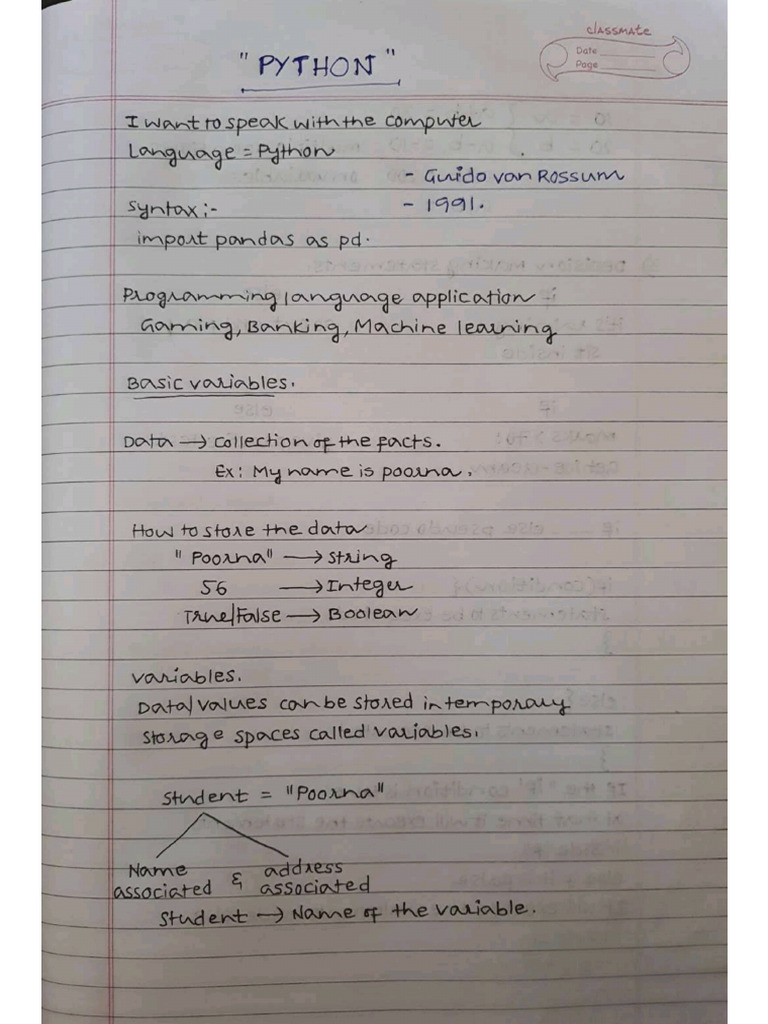 classmate
Date
Page
"PYTHON"
I want to speak with the computer
Language = Python
- Guido van Rossum
- 1991.
Syntax :-
import pandas as pd.
Programming language application
Gaming, Banking, Machine learning
Basic variables.
Data → Collection of the facts.
Ex: My name is poorna.
How to store the data
"Poorna" → String
56 → Integer
True/False → Boolean
variables.
Data/values can be stored in temporary
storage spaces called variables.
Student = "Poorna"
Name & address
associated associated
Student → Name of the variable.